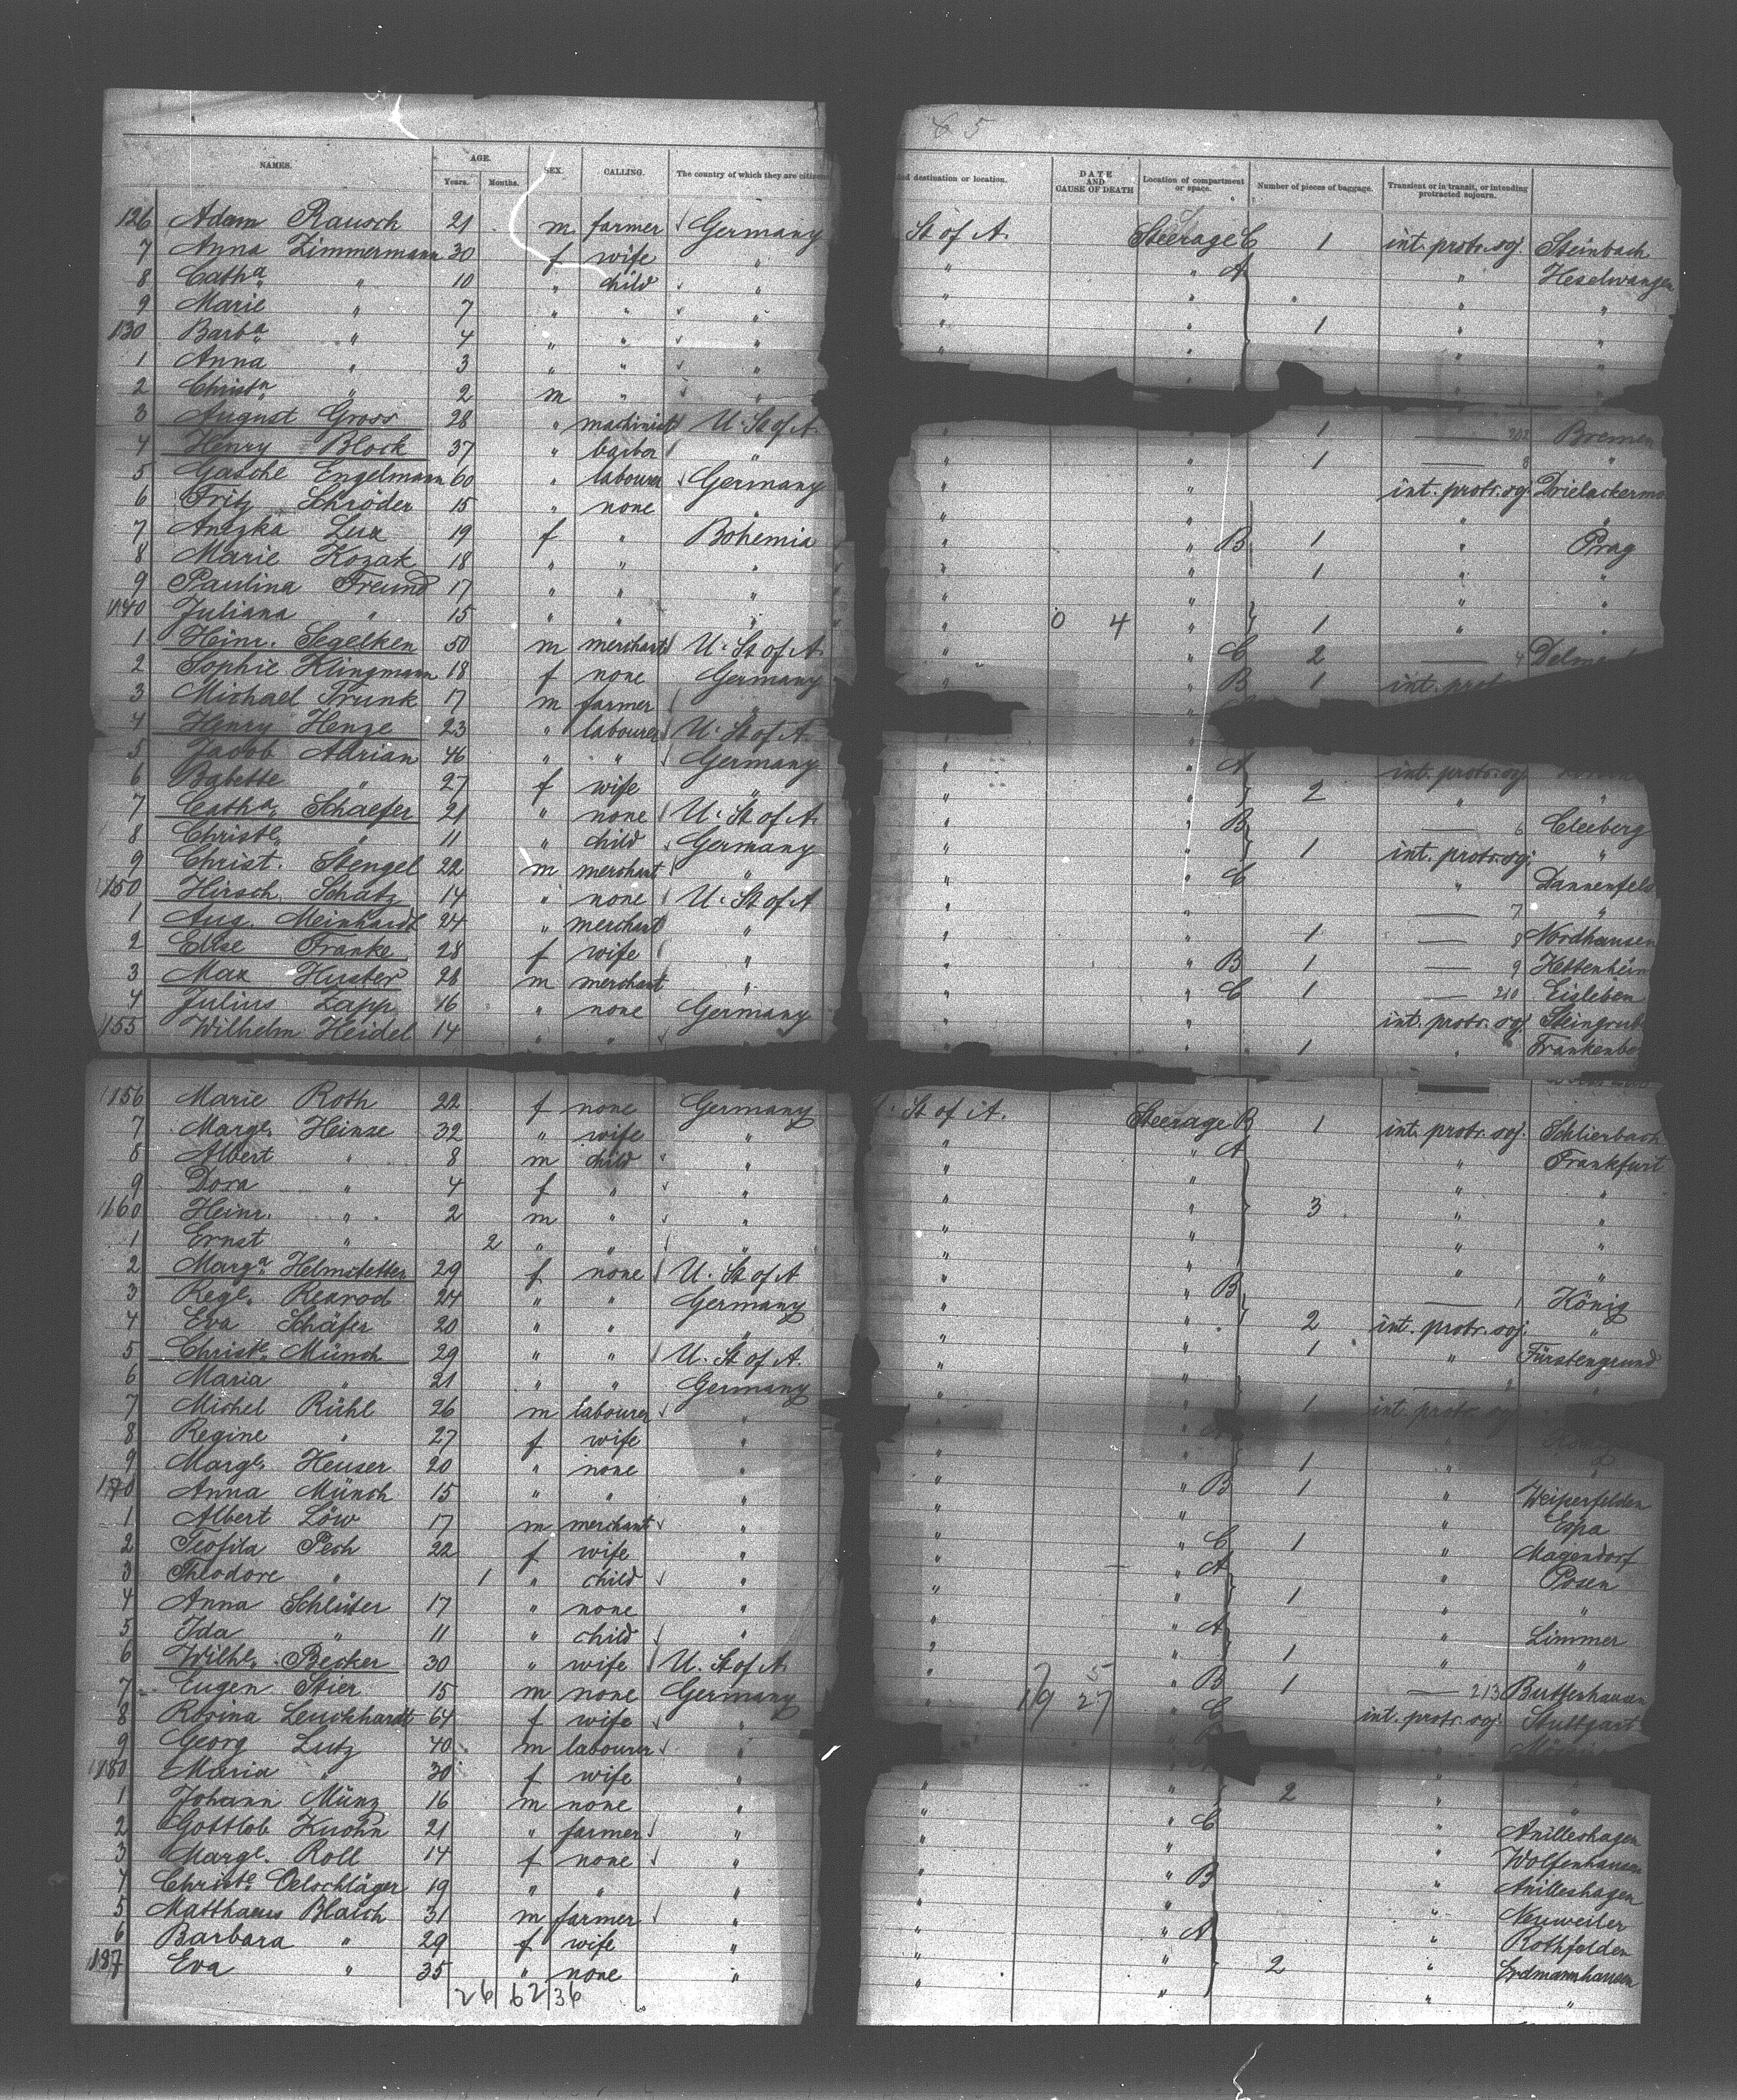 6 5
NAMES. AGE. Years. Months. SEX. CALLING. The country of which they are citizens destination or location. DATE AND CAUSE OF DEATH Location of compartment or space. Number of pieces of baggage. Transient or in transit, or intending protracted sojourn.
126 Adam Rausch 21 m farmer Germany St of A. Steerage C 1 int. protr. soj. Steinbach
7 Anna Zimmermann 30 f wife " " " A " Heselwangen
8 Catha " 10 " child " " " " "
9 Marie " 7 " " " " " 1 " "
130 Barba " 4 " " " " " " "
1 Anna " 3 " " " "
2 Christn " 2 m " "
3 August Gross 28 " machinist U. St of A. " " 1 — 203 Bremen
4 Henry Block 37 " barber " " " 1 — 8 "
5 Gasche Engelmann 60 " labourer Germany " " int. protr. soj.
6 Fritz Schröder 15 " none " " " "
7 Anezka Lux 19 f " Bohemia " " B 1 " Prag
8 Marie Kozak 18 " " " " " 1 " "
9 Paulina Freund 17 " " " " " " "
140 Juliana " 15 " " " " 0 4 " 1 " "
1 Heinr. Segelken 50 m merchant U. St of A. " " C 2 — 4
2 Sophie Klingmann 18 f none Germany " " B 1 int.
3 Michael Trunk 17 m farmer " "
4 Henry Henze 23 " labourer U. St of A. " "
5 Jacob Adrian 46 " " Germany " " A int. protr. soj.
6 Babette " 27 f wife " " " 2 " "
7 Catha Schaefer 21 " none U. St of A. " " B — 6 Cleeberg
8 Christe " 11 " child Germany " " 1 int. protr. soj. "
9 Christ. Stengel 22 m merchant " " " C " Dannenfels
150 Hirsch Schatz 14 " none U. St of A " " — 7 "
1 Aug. Meinhardt 24 " merchant " " " 1 — 8 Nordhausen
2 Elise Franke 28 f wife " " " B 1 — 9
3 Max Huster 28 m merchant " " " C 1 — 210 Eisleben
4 Julius Zapp 16 " none Germany " " int. protr. soj.
155 Wilhelm Heidel 14 " " " " " 1 "
156 Marie Roth 22 f none Germany St of A. Steerage B 1 int. protr. soj. Schlierbach
7 Margt. Heinze 32 " wife " " " A " Frankfurt
8 Albert " 8 m child " " " " "
9 Dora " 4 f " " " " 3 " "
160 Heinr. " 2 m " " " " " "
1 Ernst " 2 " " " " " " "
2 Marga Helmstetter 29 f none U. St of A " " B — 1 König
3 Rege. Rexrod 24 " " Germany " " 2 int. protr. soj. "
4 Eva Schäfer 20 " " " " " 1 " Fürstengrund
5 Christe. Münch 29 " " U. St of A. " " — 2 "
6 Maria " 21 " " Germany " " 1 int. protr. soj.
7 Michel Rühl 26 m labourer " " "
8 Regine " 27 f wife " " " 1 " "
9 Margt. Heuser 20 " none " " " B 1 " Weiperfelden
170 Anna Münch 15 " " " " " " Espa
1 Albert Löw 17 m merchant " " " C 1 " Magendorf
2 Teofila Pech 22 f wife " " " A " Posen
3 Theodore " 1 " child " " " 1 " "
4 Anna Schlüter 17 " none " " " A " Limmer
5 Ida " 11 " child " " " 1 " "
6 Wilhe. Becker 30 " wife U. St of A. " " B 1 — 213 Buttenhausen
7 Eugen Stier 15 m none Germany " 19 27 5 " C int. protr. soj. Stuttgart
8 Rosina Leuckhardt 64 f wife " "
9 Georg Lutz 40 m labourer "
180 Maria " 30 f wife " " " 2 " "
1 Johann Münz 16 m none " " " C "
2 Gottlob Kuohn 21 " farmer " " " " Wolfenhausen
3 Marge. Roll 14 f none " " " B "
4 Christe. Oelschläger 19 " " " " " " Neuweiler
5 Matthaeus Blaich 31 m farmer " " " A " Rothfelden
6 Barbara " 29 f wife " " " 2 " Erdmannhausen
187 Eva " 35 " none " " " " "
26 62 36